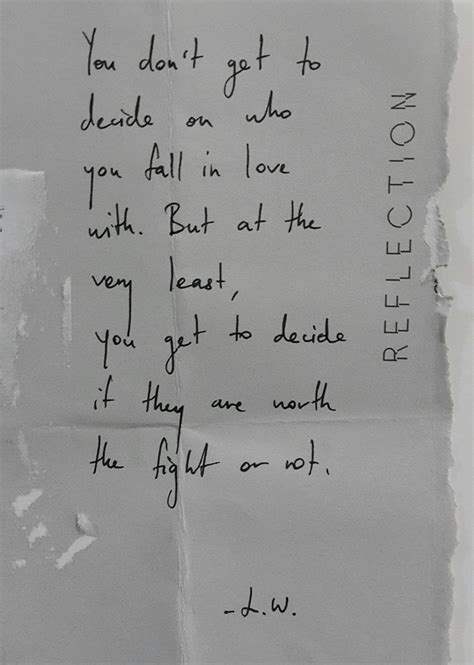 You don't get to
decide on who
you fall in love
with. But at the
very least,
you get to decide
if they are worth
the fight or not.
-L.W.
REFLECTION